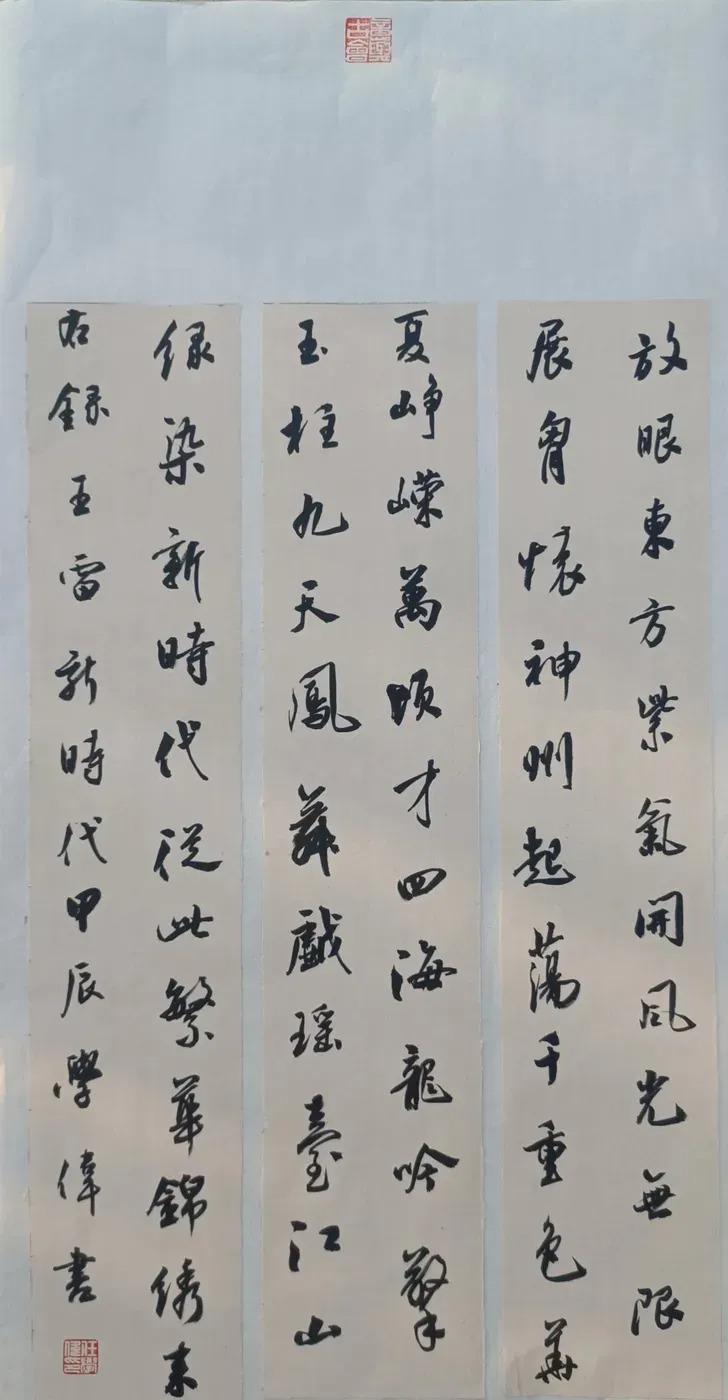 放眼東方紫氣開風光無限
展胸懷神州起蕩千重色華
夏崢嶸萬頃才四海龍吟擎
玉柱九天鳳舞戲瑶臺江山
緑染新時代從此繁華錦绣來
右録王雷新時代甲辰學偉書